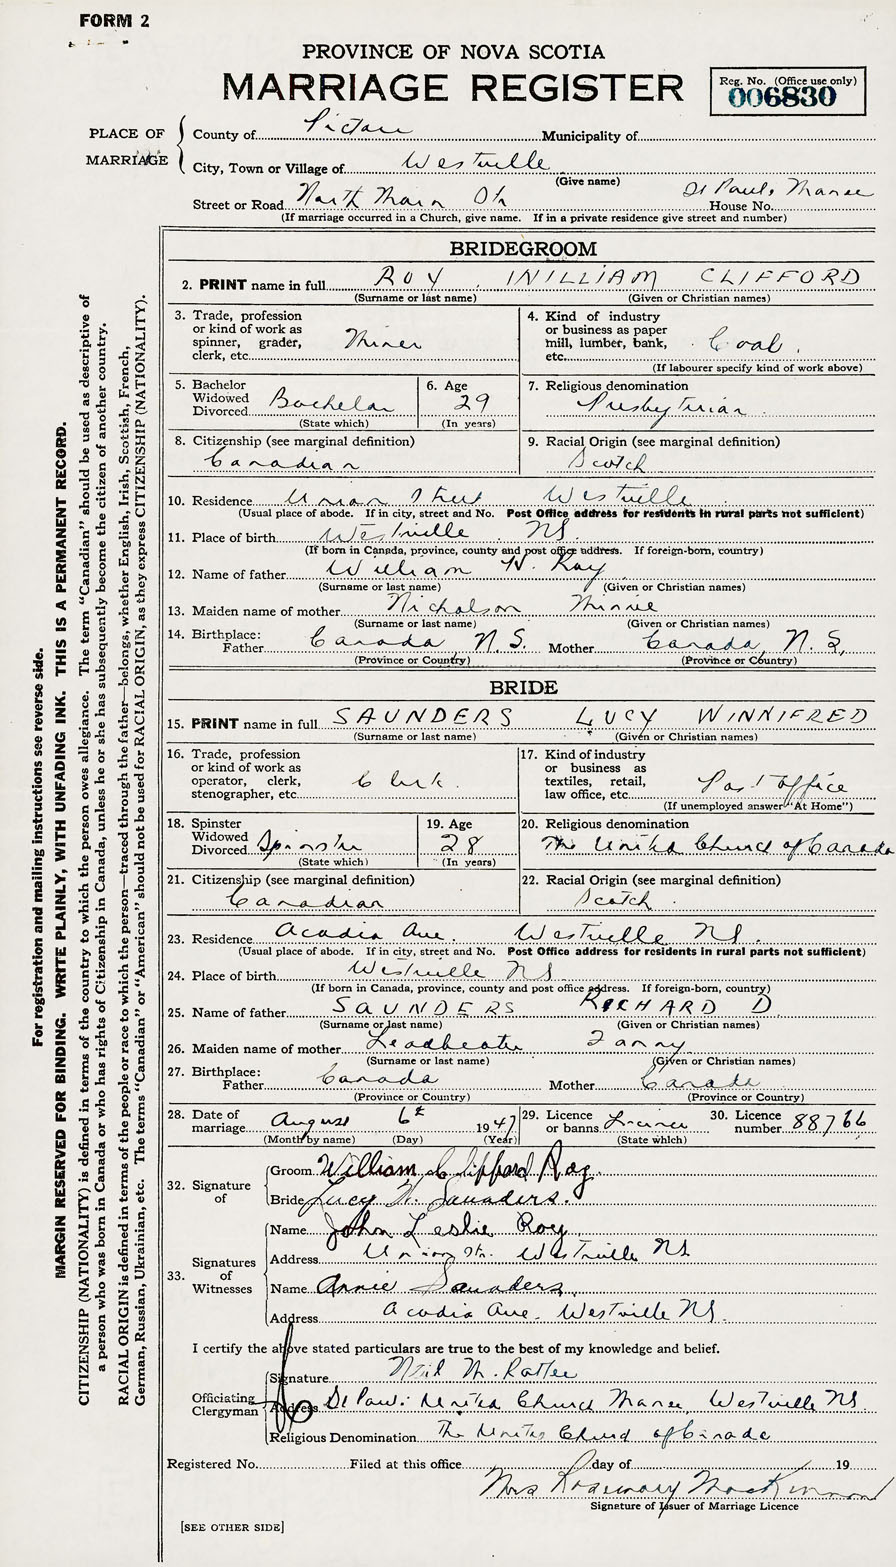 FORM 2
PROVINCE OF NOVA SCOTIA
MARRIAGE REGISTER
Reg. No. (Office use only)
006830
PLACE OF MARRIAGE
County of Pictou Municipality of
City, Town or Village of Westville
(Give name)
Street or Road North Main St. St Pauls Manse House No.
(If marriage occurred in a Church, give name. If in a private residence give street and number)
BRIDEGROOM
2. PRINT name in full ROY WILLIAM CLIFFORD
(Surname or last name) (Given or Christian names)
3. Trade, profession or kind of work as spinner, grader, clerk, etc. Miner
4. Kind of industry or business as paper mill, lumber, bank, etc. Coal.
(If labourer specify kind of work above)
5. Bachelor Widowed Divorced Bachelor
(State which)
6. Age 29
(In years)
7. Religious denomination Presbyterian
8. Citizenship (see marginal definition)
Canadian
9. Racial Origin (see marginal definition)
Scotch
10. Residence Union Street Westville
(Usual place of abode. If in city, street and No. Post Office address for residents in rural parts not sufficient)
11. Place of birth Westville NS.
(If born in Canada, province, county and post office address. If foreign-born, country)
12. Name of father William H. Roy
(Surname or last name) (Given or Christian names)
13. Maiden name of mother Nicholson Minnie
(Surname or last name) (Given or Christian names)
14. Birthplace: Father Canada N.S. Mother Canada, N.S,
(Province or Country) (Province or Country)
BRIDE
15. PRINT name in full SAUNDERS LUCY WINNIFRED
(Surname or last name) (Given or Christian names)
16. Trade, profession or kind of work as operator, clerk, stenographer, etc. Clerk.
17. Kind of industry or business as textiles, retail, law office, etc. Post Office
(If unemployed answer "At Home")
18. Spinster Widowed Divorced Spinster
(State which)
19. Age 28
(In years)
20. Religious denomination
The United Church of Canada
21. Citizenship (see marginal definition)
Canadian
22. Racial Origin (see marginal definition)
Scotch.
23. Residence Acadia Ave. Westville NS.
(Usual place of abode. If in city, street and No. Post Office address for residents in rural parts not sufficient)
24. Place of birth Westville NS
(If born in Canada, province, county and post office address. If foreign-born, country)
25. Name of father SAUNDERS RICHARD D.
(Surname or last name) (Given or Christian names)
26. Maiden name of mother Leadbeater Fanny
(Surname or last name) (Given or Christian names)
27. Birthplace: Father Canada Mother Canada
(Province or Country) (Province or Country)
28. Date of marriage August 6th 1947
(Month by name) (Day) (Year)
29. Licence or banns Licence
(State which)
30. Licence number 88766
32. Signature of
Groom William Clifford Roy.
Bride Lucy W. Saunders.
33. Signatures of Witnesses
Name John Leslie Roy
Address Union St. Westville NS
Name Annie Saunders.
Address Acadia Ave. Westville NS.
I certify the above stated particulars are true to the best of my knowledge and belief.
Officiating Clergyman
Signature Neil M.
Address St Pauls United Church Manse, Westville NS.
Religious Denomination The United Church of Canada
Registered No. Filed at this office day of 19
Mrs Rosemary MacKinnon
Signature of Issuer of Marriage Licence
[SEE OTHER SIDE]
For registration and mailing instructions see reverse side.
MARGIN RESERVED FOR BINDING. WRITE PLAINLY, WITH UNFADING INK. THIS IS A PERMANENT RECORD.
CITIZENSHIP (NATIONALITY) is defined in terms of the country to which the person owes allegiance. The term "Canadian" should be used as descriptive of
a person who was born in Canada or who has rights of Citizenship in Canada, unless he or she has subsequently become the citizen of another country.
RACIAL ORIGIN is defined in terms of the people or race to which the person—traced through the father—belongs, whether English, Irish, Scottish, French,
German, Russian, Ukrainian, etc. The terms "Canadian" or "American" should not be used for RACIAL ORIGIN, as they express CITIZENSHIP (NATIONALITY).